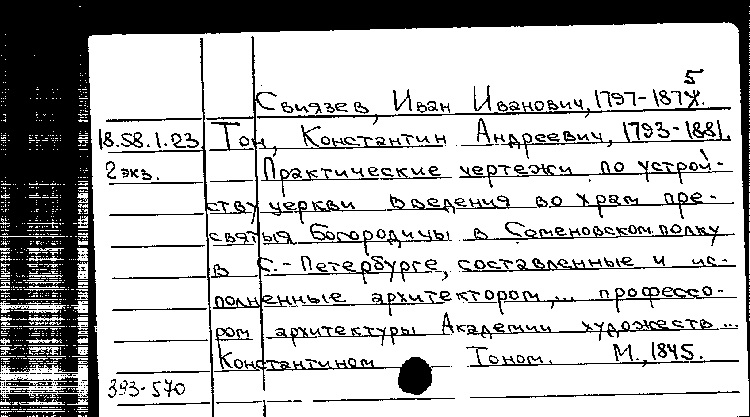 Свиязев, Иван Иванович, 1797-1875.
18.58.1.23 Тон, Константин Андреевич, 1793-1881.
2 экз. Практические чертежи по устрой-
ству церкви Введения во храм пре-
святыя Богородицы в Семеновском полку
в С.-Петербурге, составленные и ис-
полненные архитектором,... профессо-
ром архитектуры Академии художеств...
Константином Тоном. М., 1845.
393-570